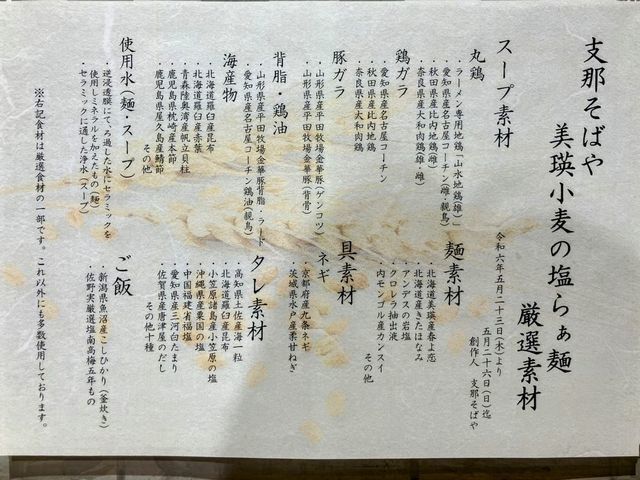 支那そばや
美瑛小麦の塩らぁ麺
厳選素材
令和六年五月二十三日(木)より
五月二十六日(日)迄
創作人 支那そばや
スープ素材
丸鶏
・ラーメン専用地鶏「山水地鶏(雄)」
・愛知県産名古屋コーチン(雌・親鳥)
・秋田県産比内地鶏(雌)
・奈良県産大和肉鶏(雄/雌)
鶏ガラ
・愛知県産名古屋コーチン
・秋田県産比内地鶏
・奈良県産大和肉鶏
豚ガラ
・山形県産平田牧場金華豚(ゲンコツ)
・山形県産平田牧場金華豚(背骨)
背脂・鶏油
・山形県産平田牧場金華豚背脂・ラード
・愛知県産名古屋コーチン鶏油(親鳥)
海産物
・北海道羅臼産昆布
・北海道羅臼産赤葉
・青森陸奥湾産帆立貝柱
・鹿児島県枕崎産本節
・鹿児島県屋久島産鯖節
その他
使用水(麺・スープ)
・逆浸透膜にてろ過した水にセラミックを
使用しミネラルを加えたもの(麺)
・セラミックに通した浄水(スープ)
麺素材
・北海道美瑛産春よ恋
・北海道産きたほなみ
・アンデスの岩塩
・クロレラ抽出液
・内モンゴル産カンスイ
その他
具素材
ネギ
・京都府産九条ネギ
・茨城県水戸産柔甘ねぎ
タレ素材
・高知県土佐産海一粒
・北海道羅臼産昆布
・小笠原諸島産小笠原の塩
・沖縄県産粟国の塩
・中国福建省福塩
・愛知県産三河白たまり
・佐賀県産唐津屋のだし
その他十種
ご飯
・新潟県魚沼産こしひかり(釜炊き)
・佐野実厳選塩南高梅五年もの
※右記食材は厳選食材の一部です。これ以外にも多数使用しております。